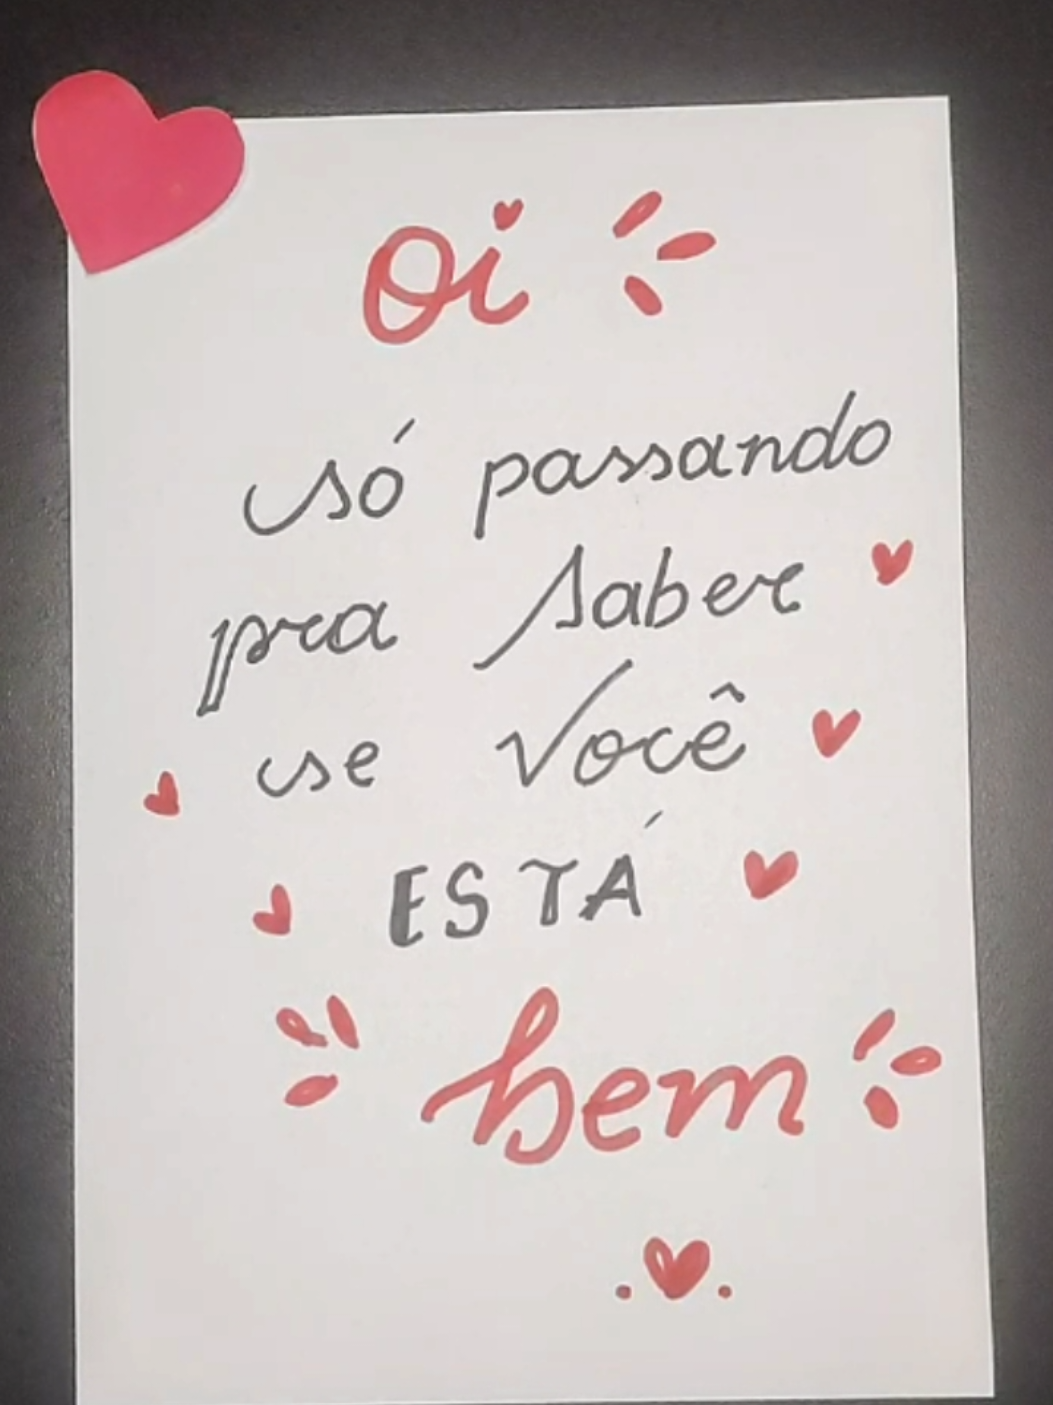 oi
só passando
pra saber
se você
ESTÁ
bem